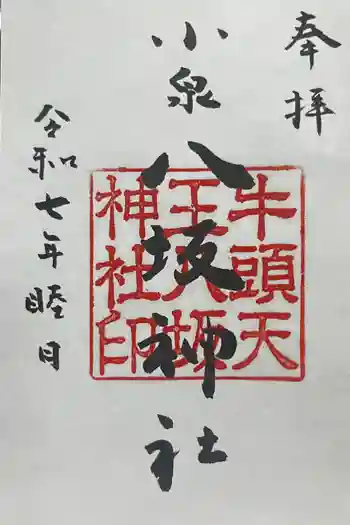 奉拝
小泉
八坂神社
牛頭天
王八坂
神社印
令和七年睦月